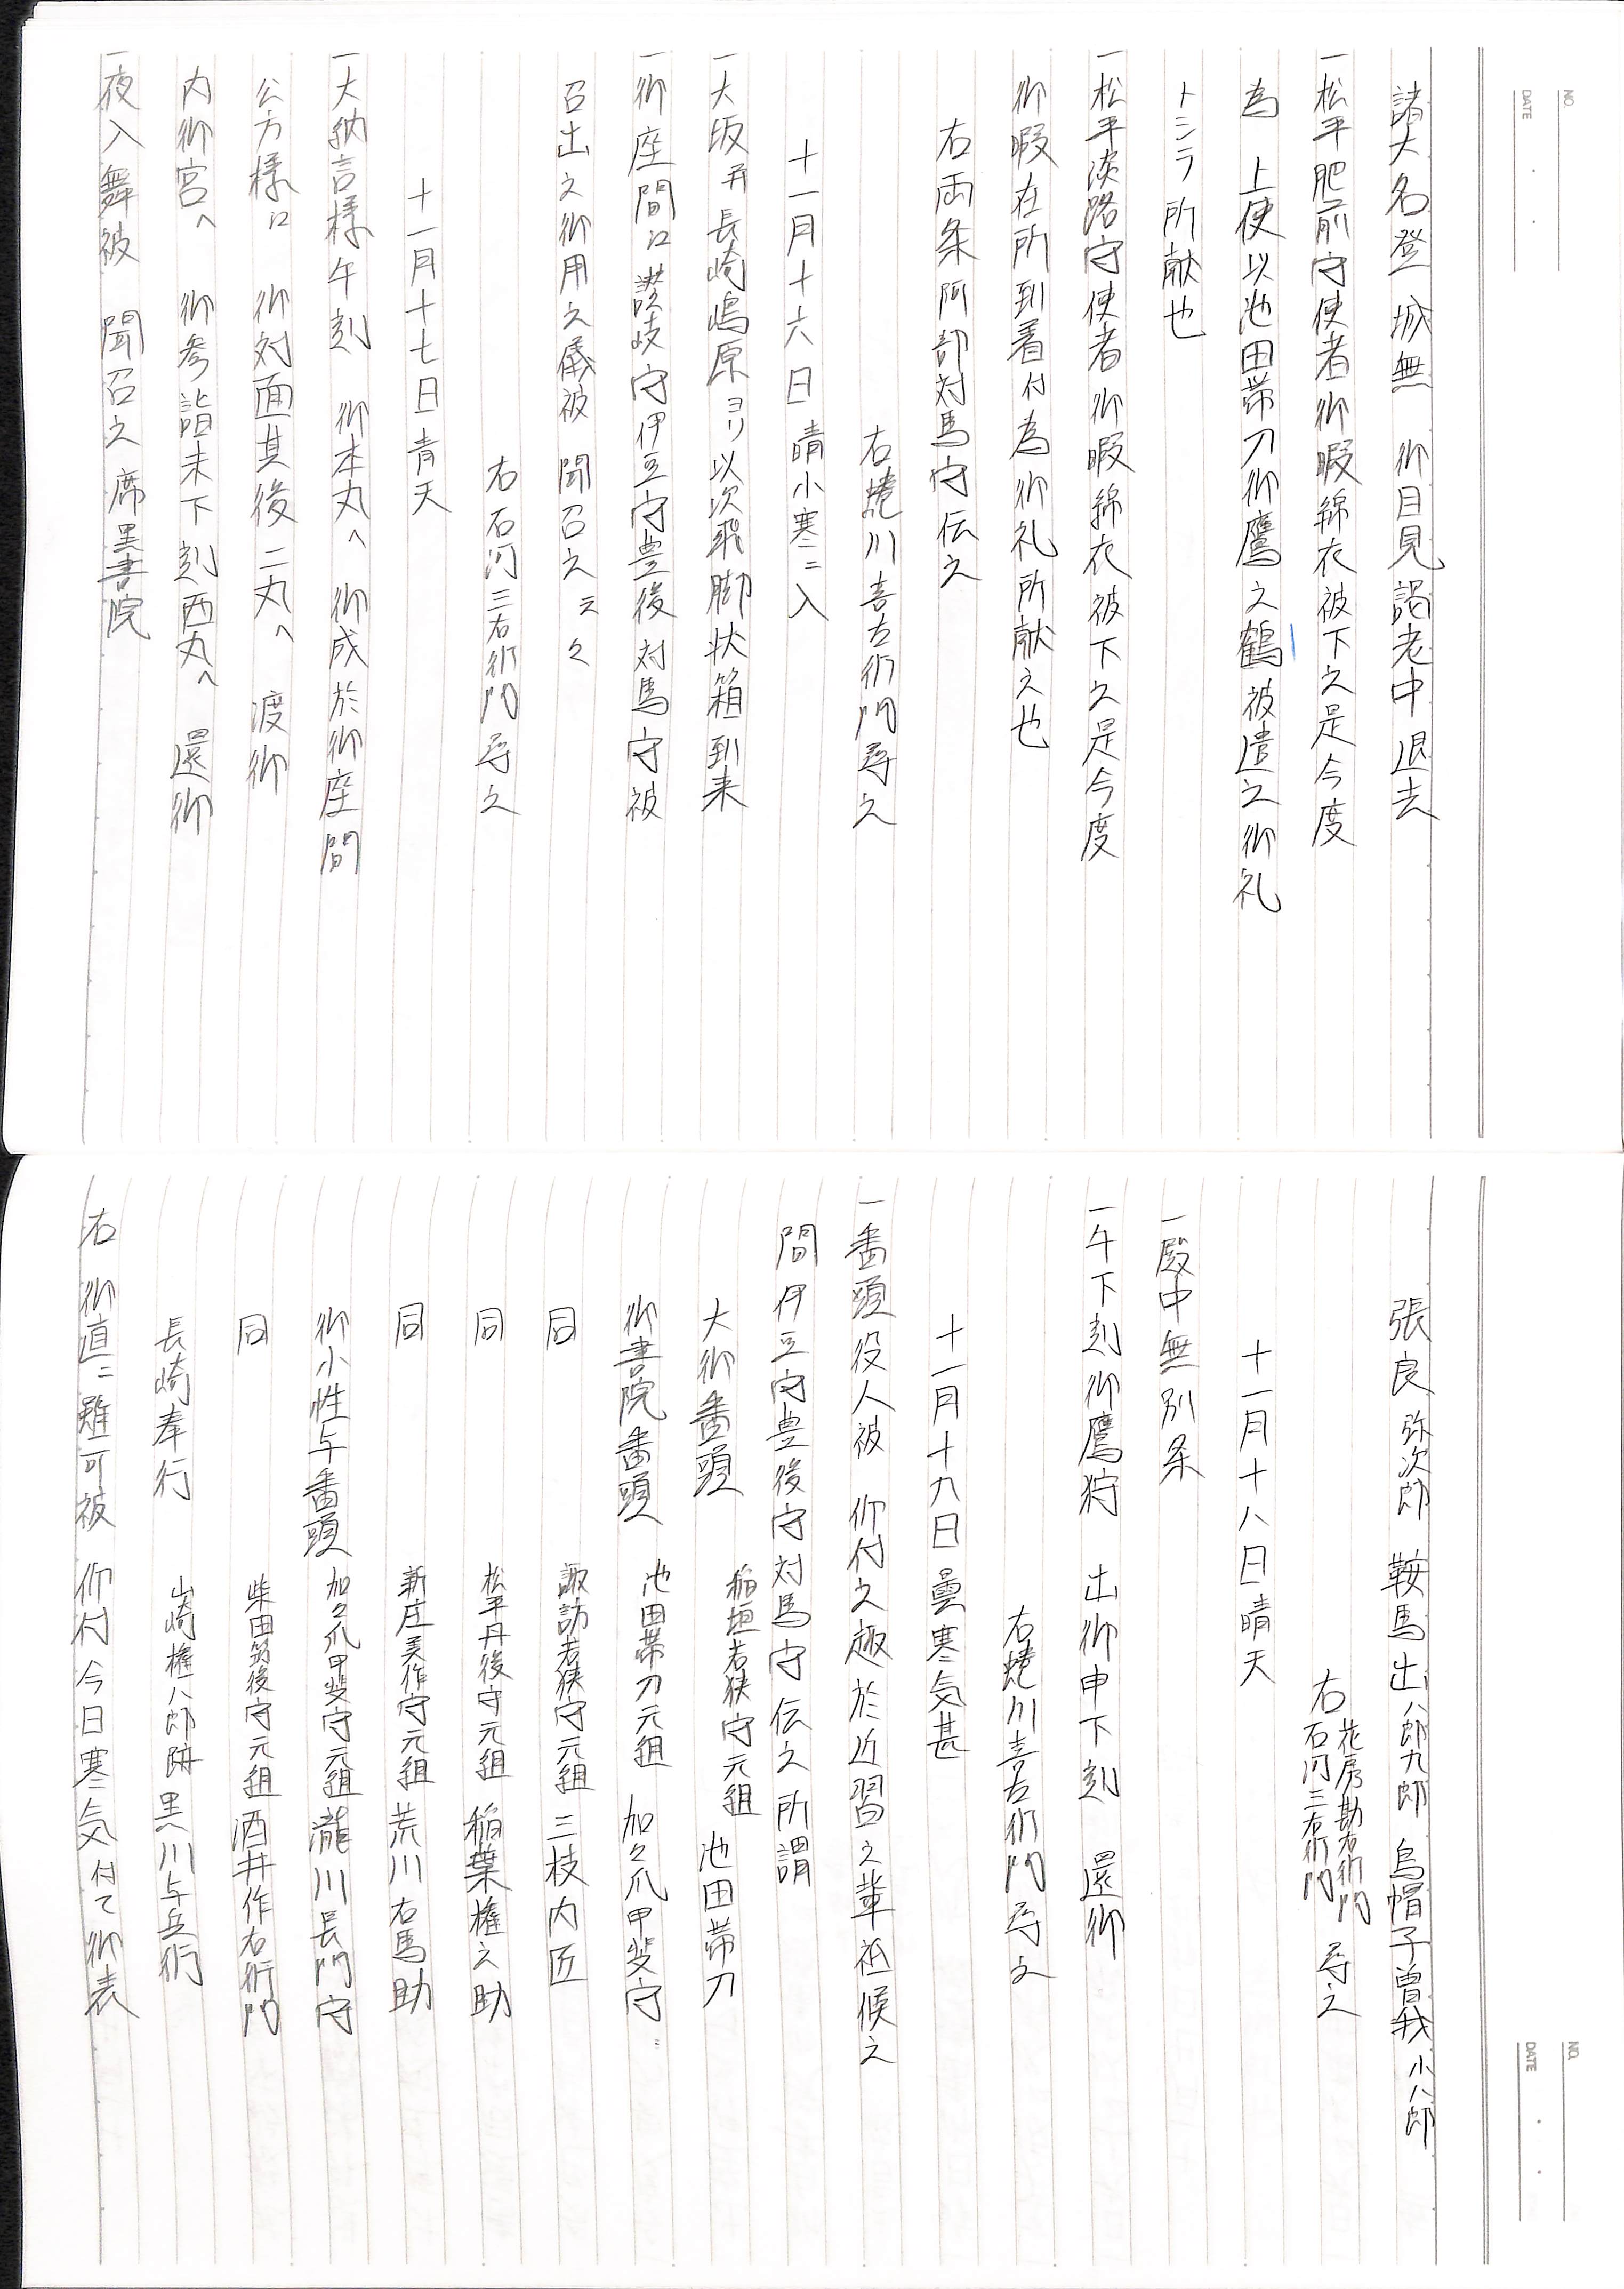 NO.
DATE
諸大名登 城無 御目見謁老中退去
一松平肥前守使者御暇綿衣被下之是今度
為 上使以池田帯刀御鷹之鶴被遣之御礼
トシテ所献也
一松平淡路守使者御暇綿衣被下之是今度
御暇在所到着付為御礼所献之也
右両条阿部対馬守伝之
右蜷川喜左衛門尋之
十一月十六日 晴小寒ニ入
一大坂并長崎嶋原ヨリ以次飛脚状箱到来
一御座間江讃岐守伊豆守豊後対馬守被
召出之御用之儀被 聞召之云々
右石河三右衛門尋之
十一月十七日青天
一大納言様午刻 御本丸へ 御成於御座間
公方様江 御対面其後二丸へ 渡御
内御宮へ 御参詣未下刻西丸へ 還御
一夜入舞被 聞召之席黒書院
NO.
DATE
張良 弥次郎 鞍馬出八郎九郎 烏帽子曽我小八郎
右 花房勘右衛門 石河三右衛門 尋之
十一月十八日晴天
一殿中無別条
一午下刻御鷹狩 出御申下刻 還御
右蜷川喜左衛門尋之
十一月十九日曇寒気甚
一番頭役人被 仰付之趣於近習之輩祗候之
間伊豆守豊後守対馬守伝之所謂
大御番頭 稲垣若狭守元組 池田帯刀
御書院番頭 池田帯刀元組 加々爪甲斐守
同 諏訪若狭守元組 三枝内匠
同 松平丹後守元組 稲葉権之助
同 新庄美作守元組 荒川右馬助
御小性与番頭 加々爪甲斐守元組 瀧川長門守
同 柴田筑後守元組 酒井作右衛門
長崎奉行 山崎権八郎跡 黒川与兵衛
右 御直ニ雖可被 仰付今日寒気付て御表